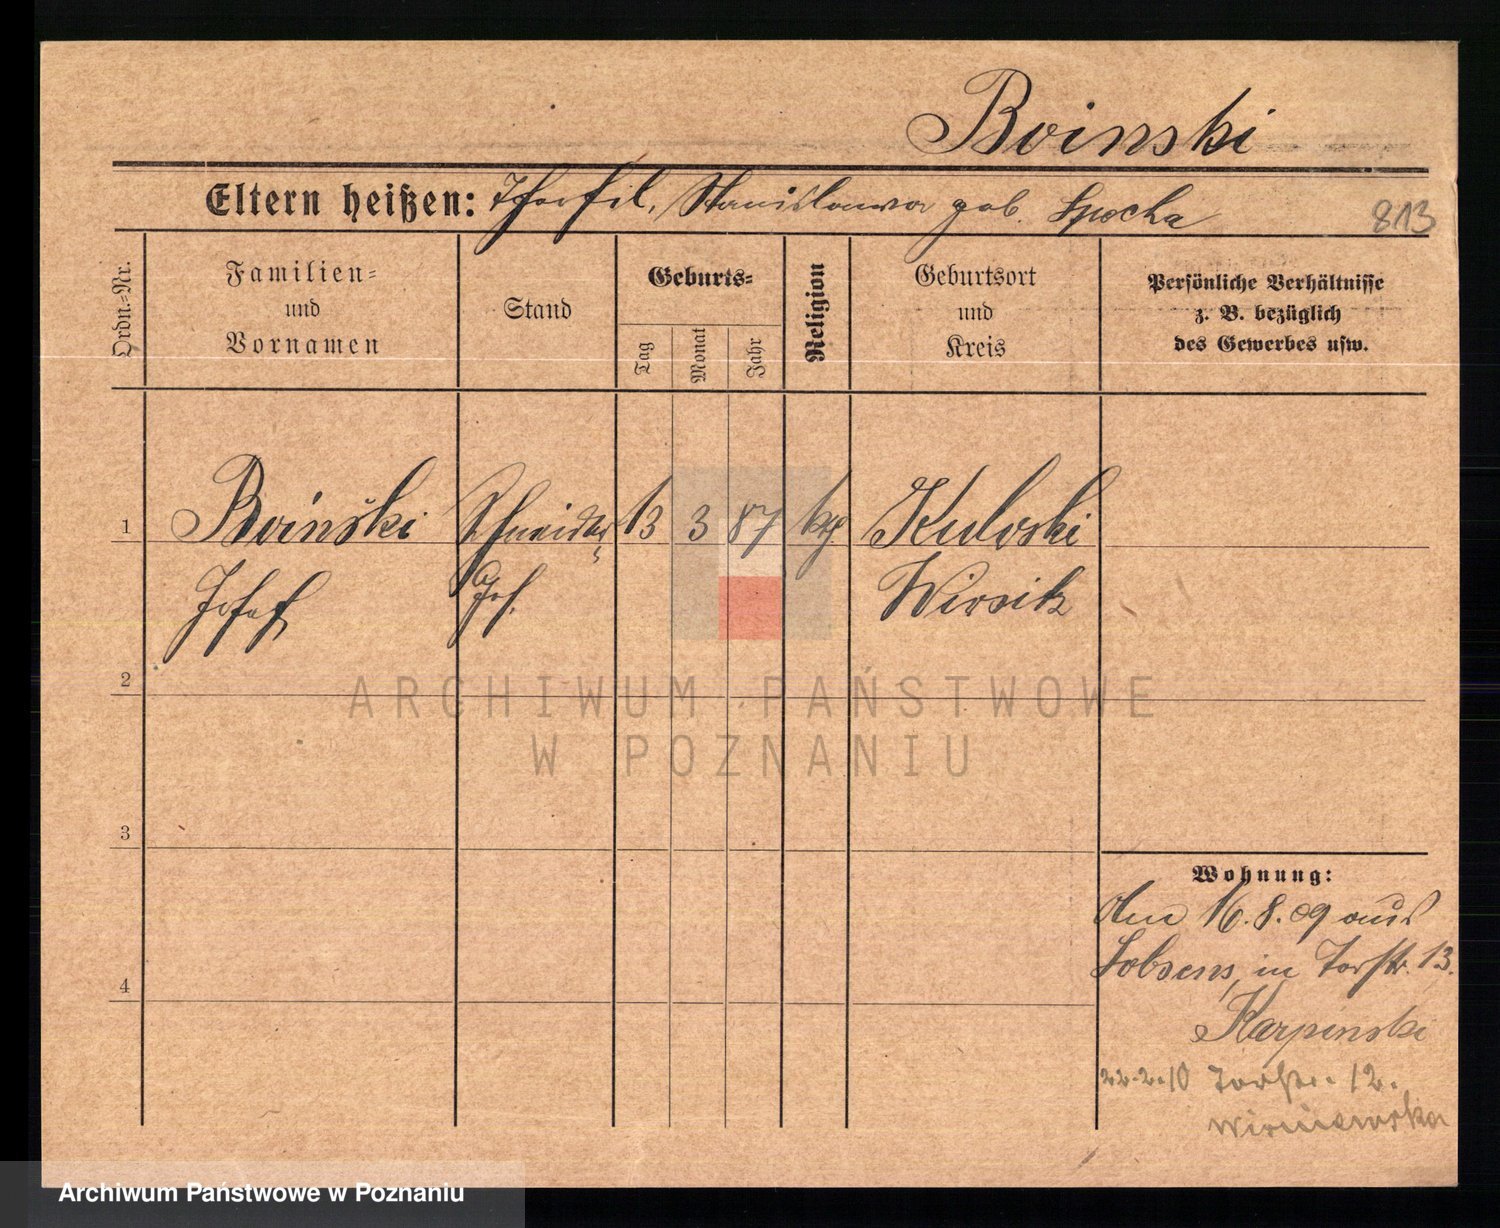 Boinski
Eltern heißen: Theofil, Stanislawa geb. Spocha
813
Ordn.-Nr.
Familien-
und
Vornamen
Stand
Geburts-
Tag
Monat
Jahr
Religion
Geburtsort
und
Kreis
Persönliche Verhältnisse
z. B. bezüglich
des Gewerbes usw.
1
Boinski
Schneider
13
3
87
kth
Kuloski
Josef
Wirsitz
2
ARCHIWUM PAŃSTWOWE
W POZNANIU
3
Wohnung:
Am 16.8.09 aus
Lobsens, in Torstr. 13.
4
Karpinski
22.2.10 Torstr. 12.
Archiwum Państwowe w Poznaniu